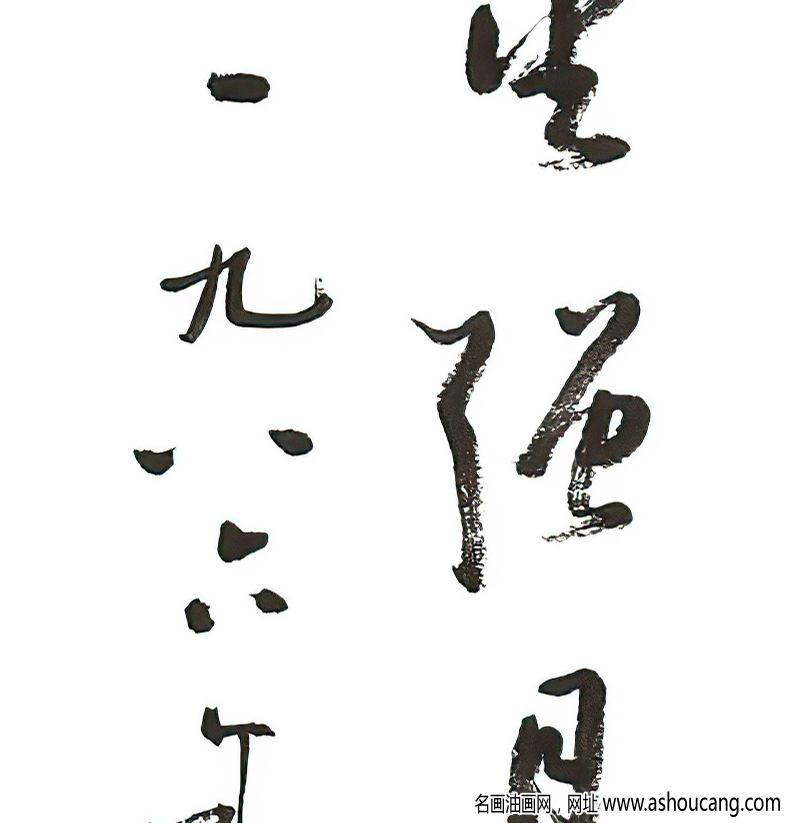 强
一九八六年
名画油画网，网址 www.ashoucang.com